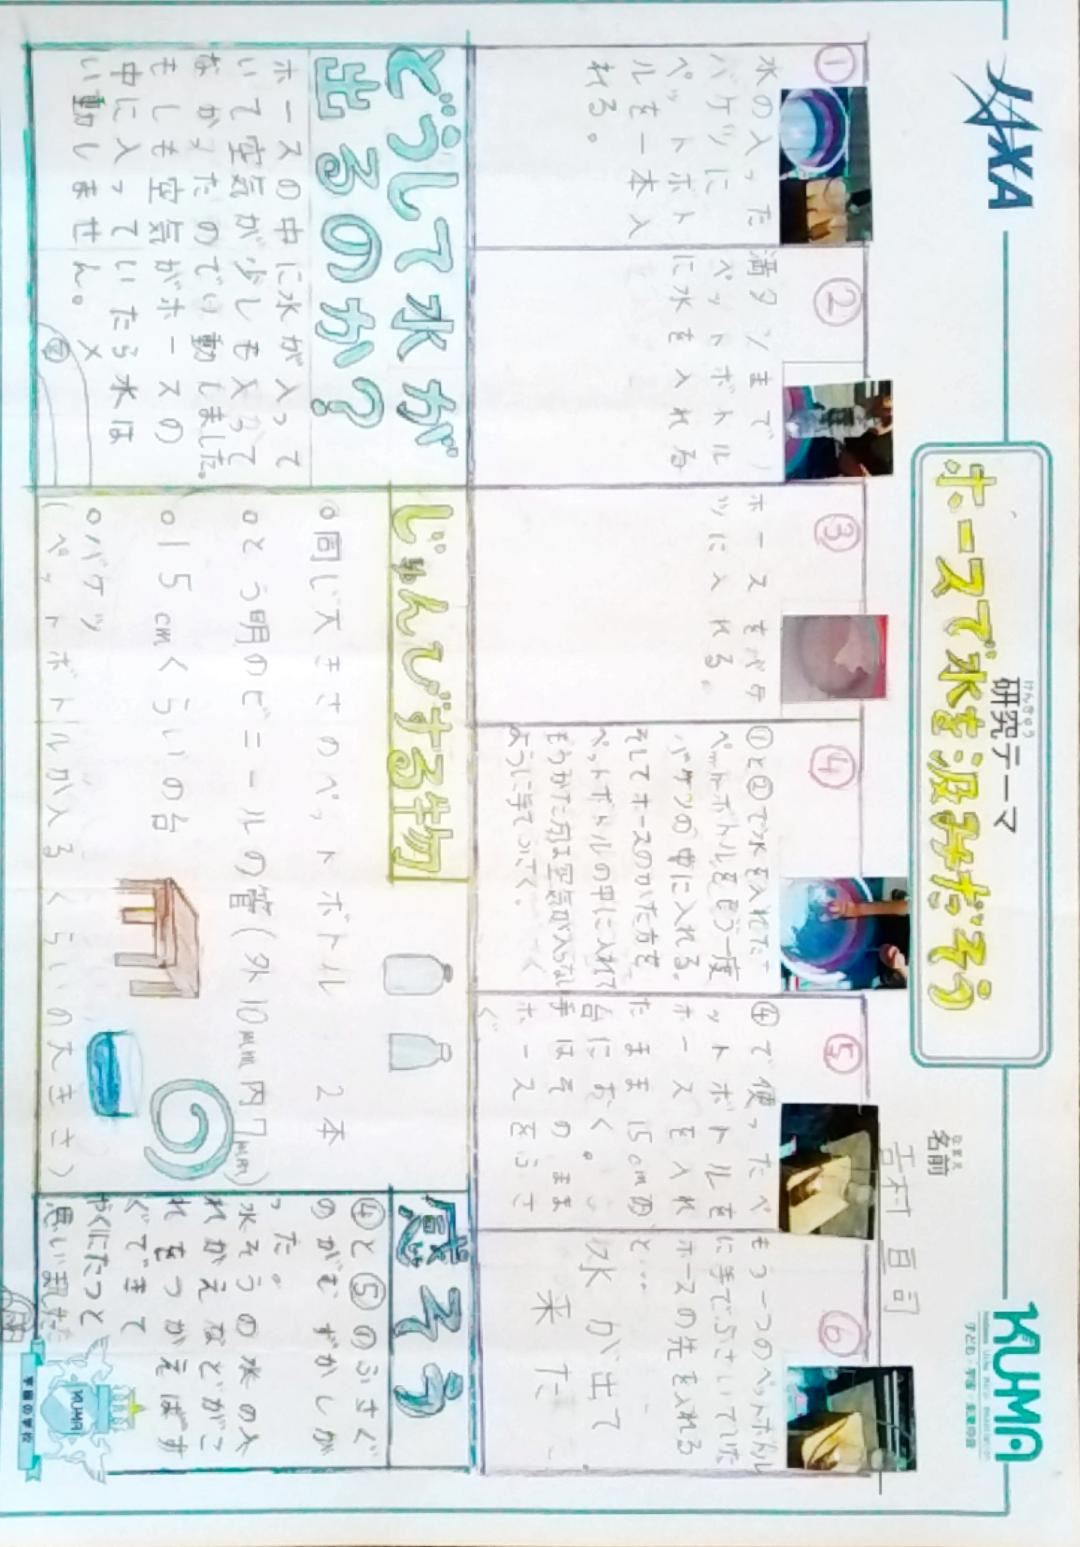 JAXA
研究テーマ
けんきゅう
ホースで水を汲みだそう
名前
なまえ
吉村亘司
KUMA
子ども・宇宙・未来の会
①
水の入った
バケツに
ペットボト
ルを一本入
れる。
②
満タンまで
ペットボトル
に水を入れる
③
ホースをバケ
ツに入れる。
④
①と②で水を入れた
ペットボトルをもう一度
バケツの中に入れる。
そしてホースのかた方を
ペットボトルの中に入れて
もうかた方は空気が入らない
ように手でふさぐ。
⑤
④で使ったペ
ットボトルを
ホースを入れ
たまま15cmの
台におく。
手はそのまま
ホースをふさ
ぐ
⑥
もう一つのペットボトル
に手でふさいでいた
ホースの先を入れる
と…
水が出て
来た
どうして水が
出るのか?
ホースの中に水が入って
いて空気が少しも入って
なかったので動しました。
もしも空気がホースの
中に入っていたら水は
い動しません。
じゅんびする物
○同じ大きさのペットボトル 2本
○とう明のビニールの管(外10mm内7mm)
○15cmくらいの台
○バケツ
(ペットボトルが入るくらいの大きさ)
感そう
④と⑤のふさぐ
のがむずかしか
った。
水そうの水の入
れかえなどがこ
れをつかえばす
ぐできて
やくにたつと
思いました
KUMA
宇宙の学校